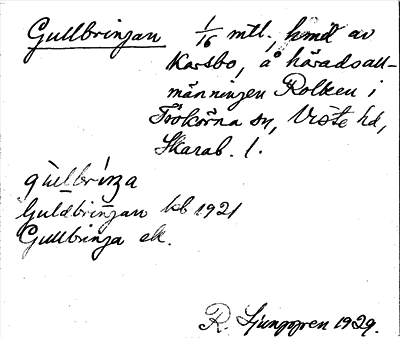 Gullbringan 1/16 mtl., hmd av
Karsbo, å häradsall-
männingen Rolken i
Trökörna sn, Viste hd,
Skarab. l.
gùlbrìŋa
Guldbringan kb 1921
Gullbringa ek.
R. Ljunggren 1929.